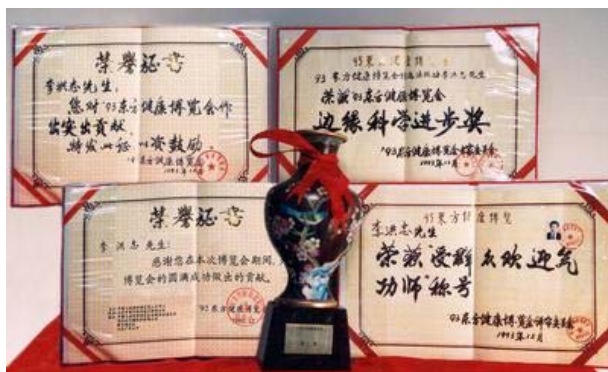 荣誉证书
李洪志先生:
您对'93东方健康博览会作
出突出贡献,
特发此证 以资鼓励.
'93东方健康博览会
1993年12月
93东方健康博览会
荣获'93东方健康博览会
边缘科学进步奖
'93东方健康博览会
1993年12月
荣誉证书
李洪志 先生:
感谢您在本次博览会期间,
博览会的圆满成功做出的贡献.
'93东方健康博览
93东方健康博览
李洪志先生
荣获"受群众欢迎气
功师"称号
'93东方健康博览会评审委员会
1993年12月